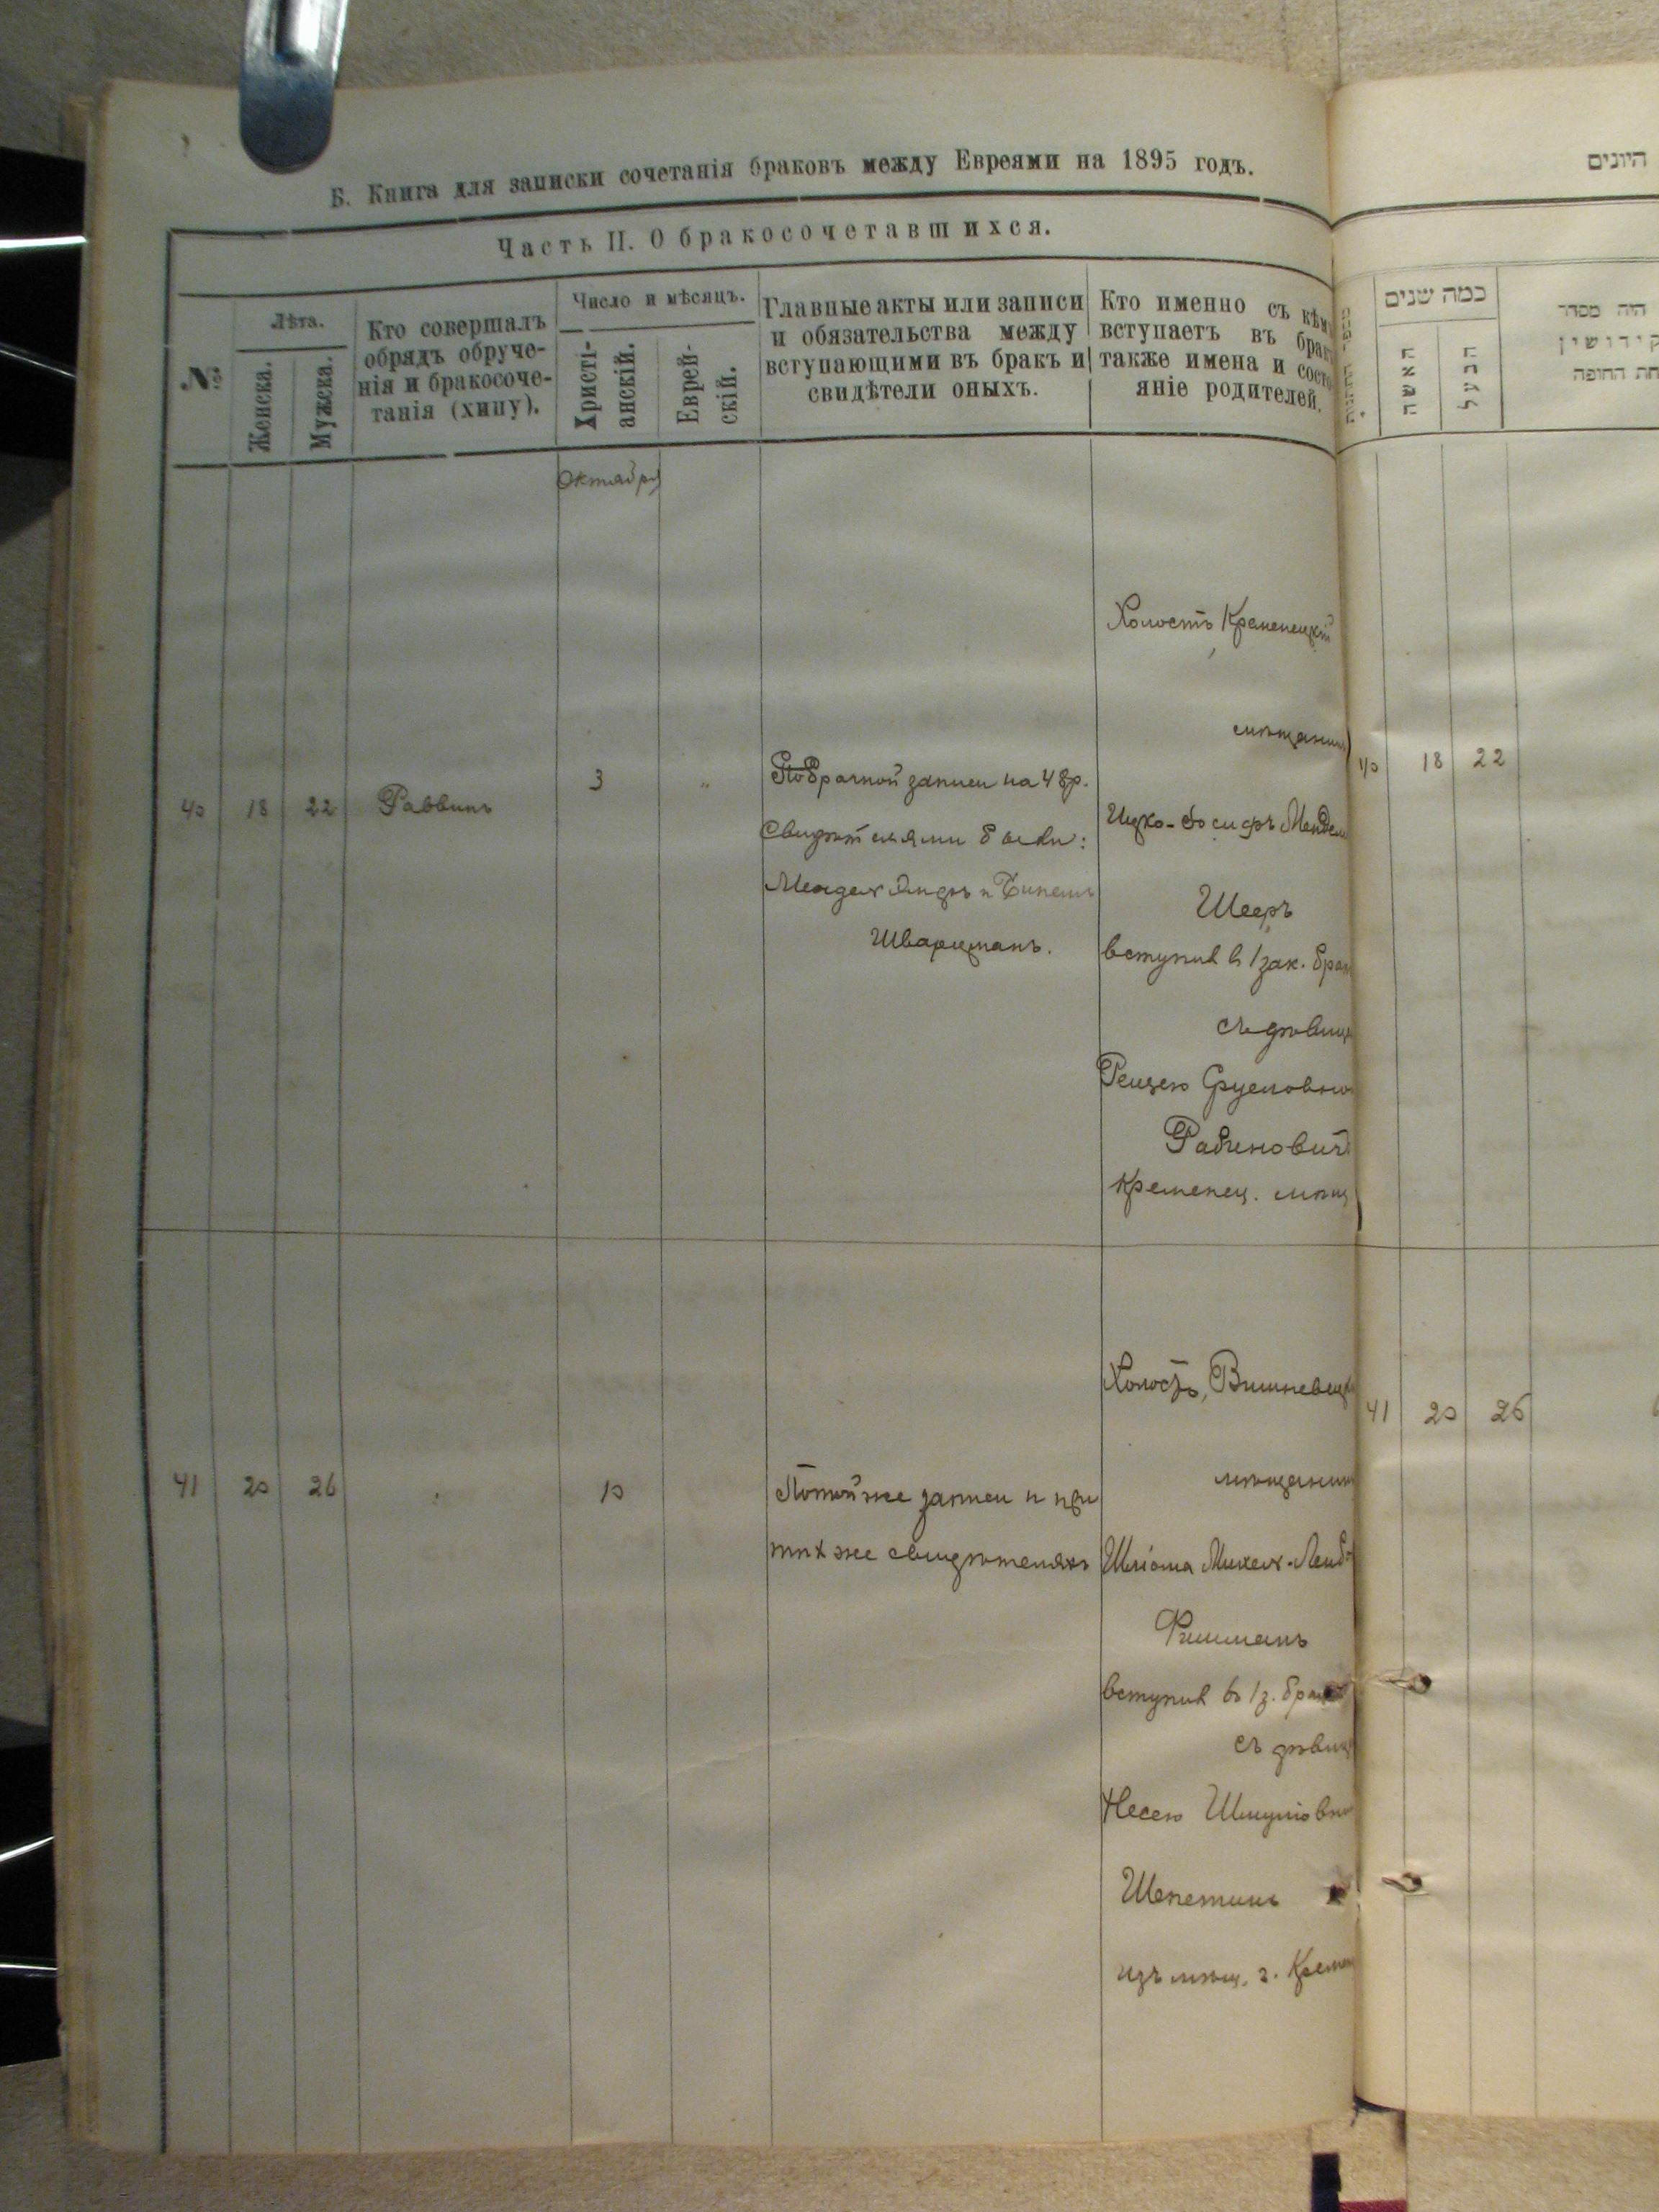 Б. Книга для записки сочетанія браковъ между Евреями на 1895 годъ.
Часть II. О бракосочетавшихся.
№
Лѣта.
Женска.
Мужска.
Кто совершалъ
обрядъ обруче-
нія и бракосоче-
танія (хипу).
Число и мѣсяцъ.
Христі-
анскій.
Еврей-
скій.
Главные акты или записи
и обязательства между
вступающими въ бракъ и
свидѣтели оныхъ.
Кто именно съ кѣмъ
вступаетъ въ бракъ
также имена и состо-
яніе родителей.
Октября
40
18
22
Раввинъ
3
"
По брачной записи на 48р.
Свидѣтелями были:
Мендель
Шварцманъ.
Холостъ Кременецкій
мѣщанинъ
Ицко-Іосифъ Мендел
Шееръ
вступил в 1 зак. брак
съ дѣвиц
Рейзею Сруловно
Рабинович
Кременец. мѣщ
41
20
26
10
По той же записи и при
тѣх же свидѣтеляхъ
Холостъ, Вишневецк
мѣщанин
Шліома Михель-Лейб
Фишманъ
вступил въ 1 з. брак
съ дѣвиц
Несею Шмуліовно
Шепетинъ
изъ мѣщ. г. Кремен
היונים
כמה שנים
האשה
הבעל
היה מסדר
קידושין
חת החופה
40
18
22
41
20
26